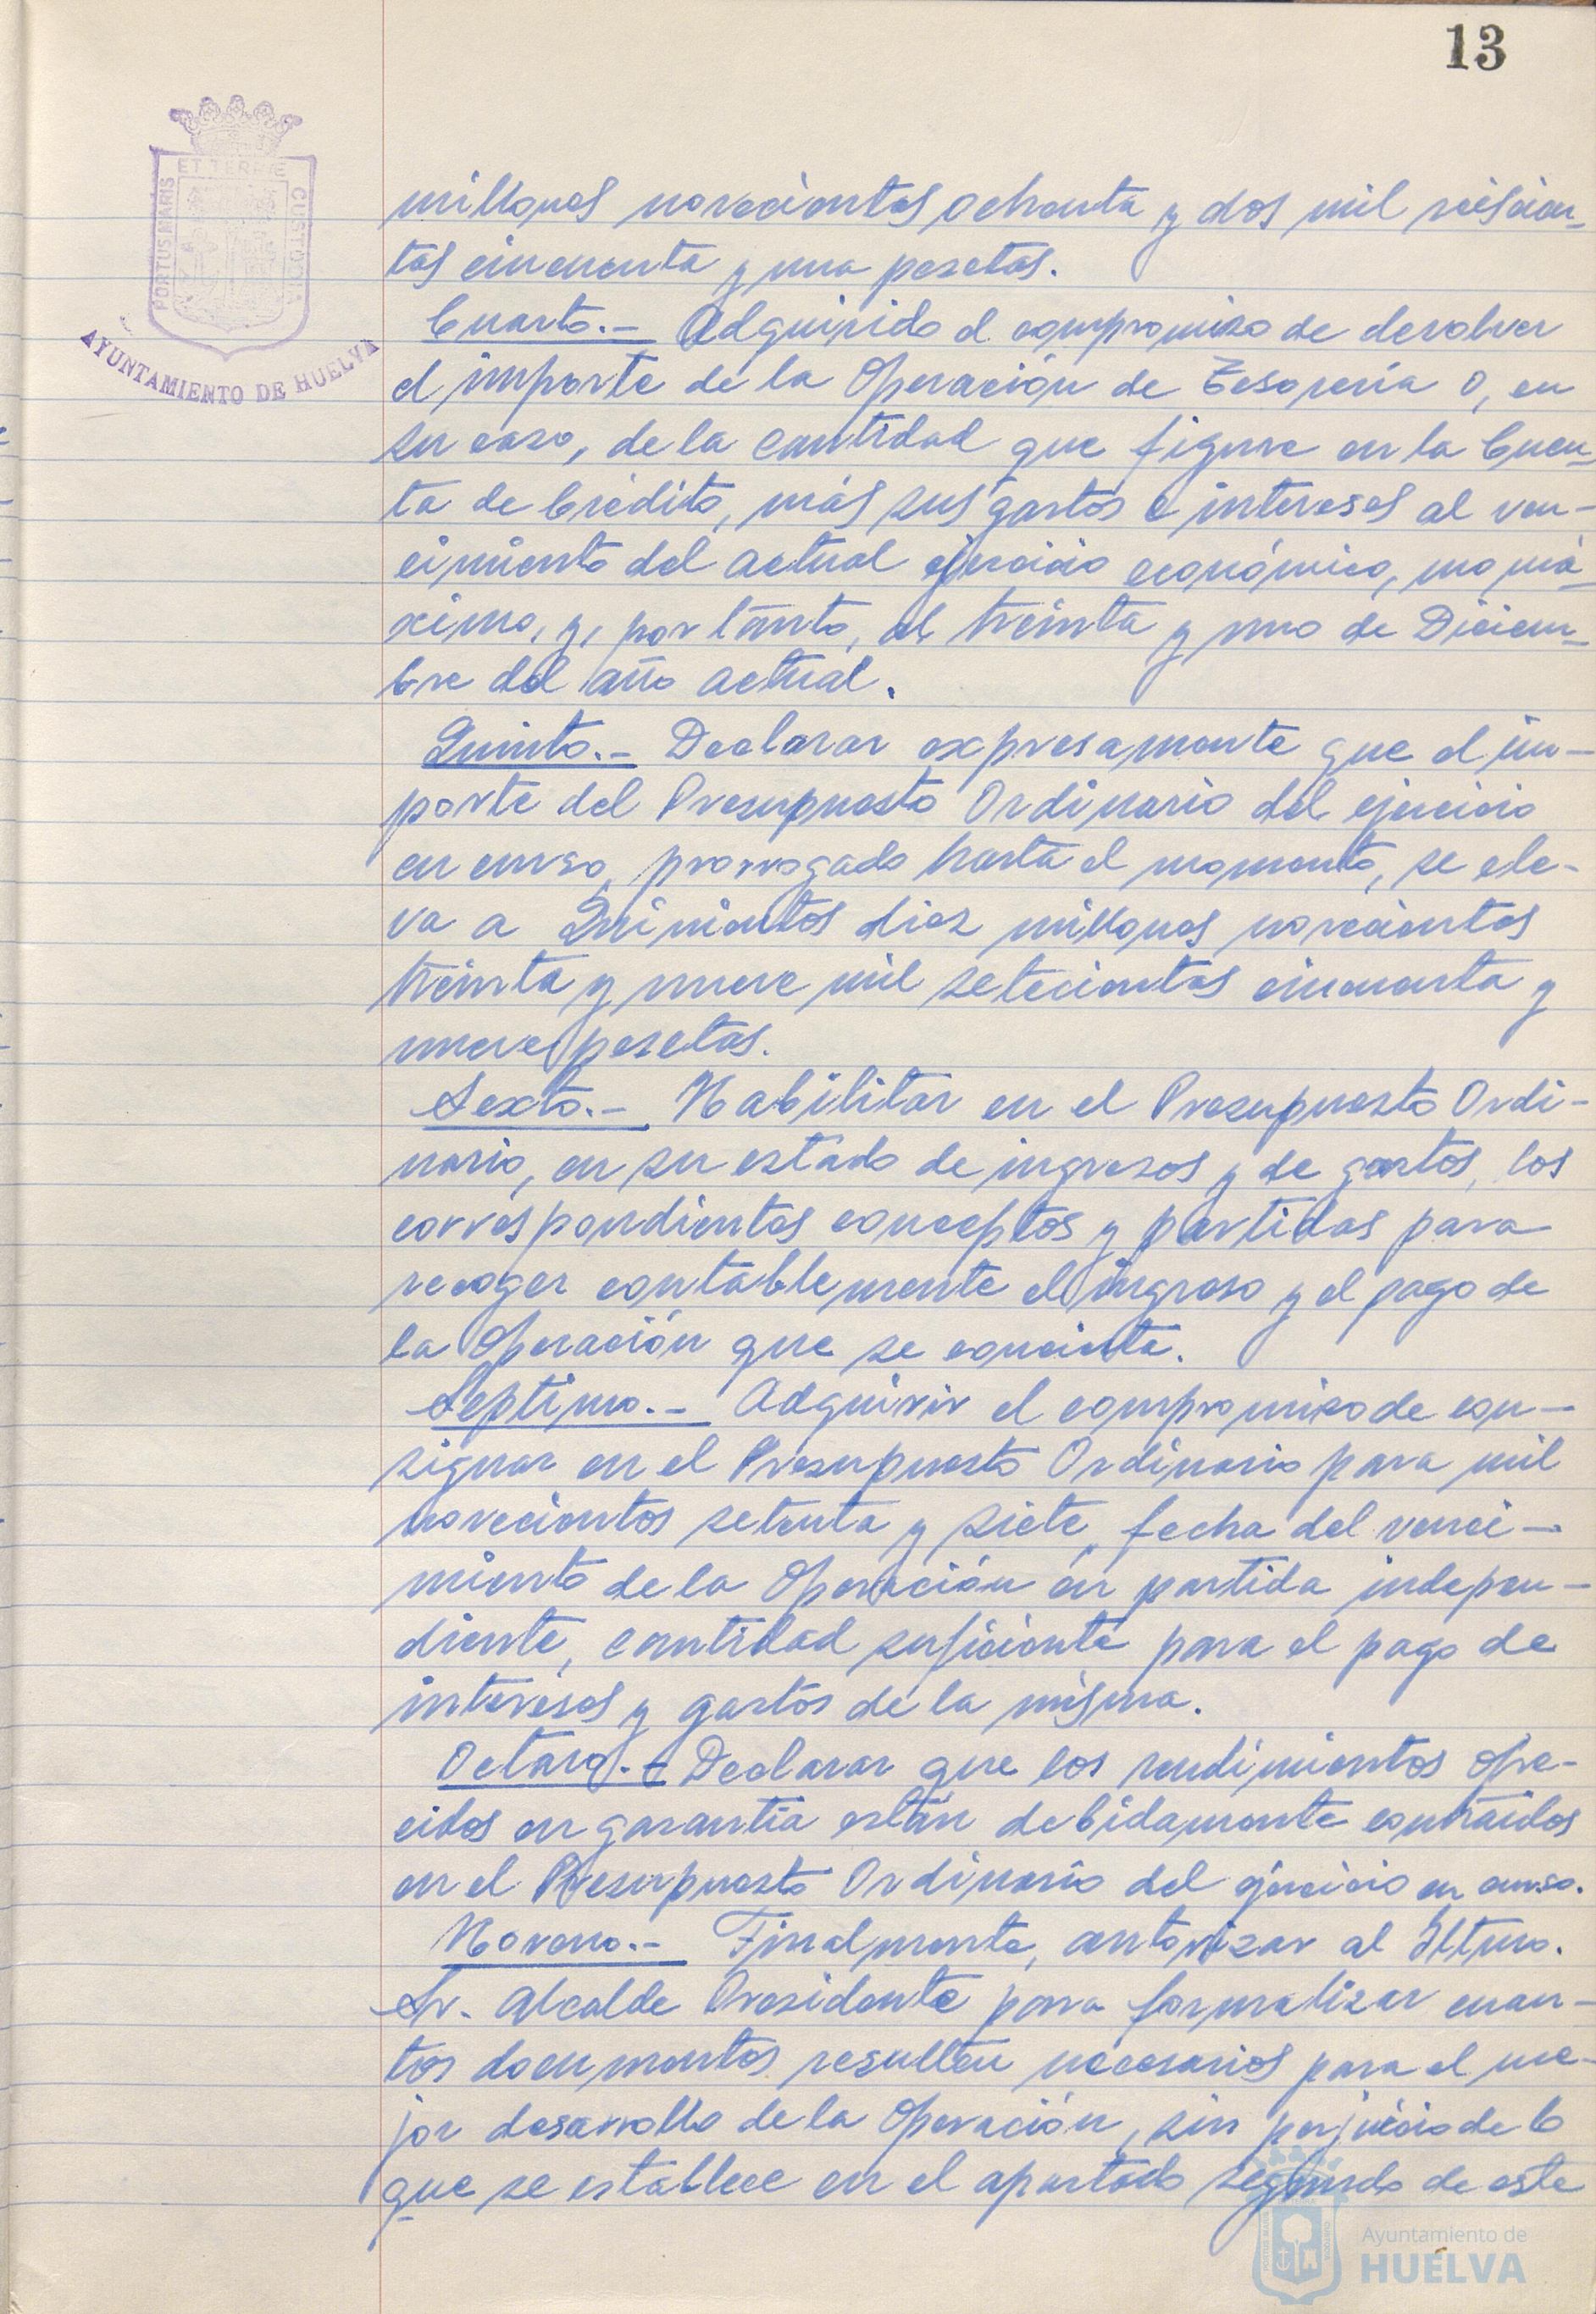 13
ET TERRÆ
PORTUS MARIS
CUSTODIA
AYUNTAMIENTO DE HUELVA
millones novecientos ochenta y dos mil seiscien-
tas cincuenta y una pesetas.
Cuarto.- Adquirido el compromiso de devolver
el importe de la Operación de Tesorería o, en
su caso, de la cantidad que figure en la Cuen-
ta de Crédito, más sus gastos e intereses al ven-
cimiento del actual ejercicio económico, como má
ximo, y, por tanto, al treinta y uno de Diciem-
bre del año actual.
Quinto.- Declarar expresamente que el im-
porte del Presupuesto Ordinario del ejercicio
en curso, prorrogado hasta el momento, se ele-
va a Quinientos diez millones novecientos
treinta y nueve mil setecientas cincuenta y
nueve pesetas.
Sexto.- Habilitar en el Presupuesto Ordi-
nario, en su estado de ingresos y de gastos, los
correspondientes conceptos y partidas para
recoger contablemente el ingreso y el pago de
la Operación que se concierta.
Septimo.- Adquirir el compromiso de con-
signar en el Presupuesto Ordinario para mil
novecientos setenta y siete, fecha del venci-
miento de la Operación en partida indepen-
diente, cantidad suficiente para el pago de
intereses y gastos de la misma.
Octavo.- Declarar que los rendimientos ofre-
cidos en garantía están debidamente contraidos
en el Presupuesto Ordinario del ejercicio en curso.
Noveno.- Finalmente, autorizar al Iltmo.
Sr. Alcalde Presidente para formalizar cuan-
tos documentos resulten necesarios para el me-
jor desarrollo de la Operación, sin perjuicio de lo
que se establece en el apartado segundo de este
Ayuntamiento de
HUELVA